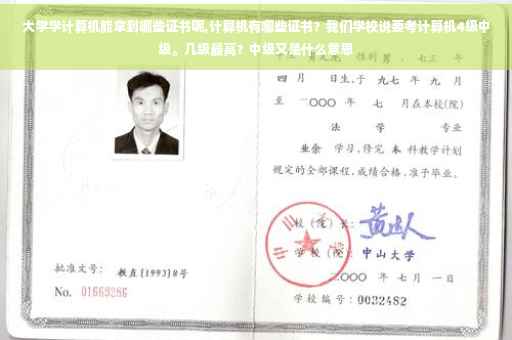 大学学计算机能拿到哪些证书呢,计算机有哪些证书？我们学校说要考计算机4级中
级。几级最高？中级又是什么意思
四 月 日生,于 九七 年 九 月
至 二〇〇〇 年 七 月在本校(院)
法 学 专业
业余 学习,修完 本 科教学计划
规定的全部课程,成绩合格,准予毕业。
校(院)长:
学校(院): 中山大学
二〇〇〇 年 七 月 一 日
批准文号: 教直[1993]8号
No. 01669286
学校编号: 0032482